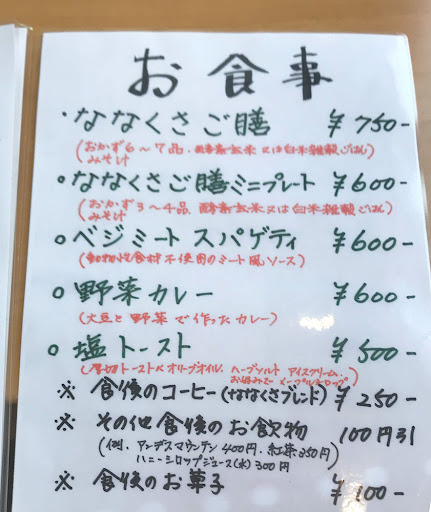 お食事
・ななくさご膳 ¥750-
(おかず6〜7品、酵素玄米又は白米雑穀ごはん)
みそ汁
○ななくさご膳ミニプレート ¥600-
(おかず3〜4品、酵素玄米又は白米雑穀ごはん)
みそ汁
○ベジミートスパゲティ ¥600-
(動物性食材不使用のミート風ソース)
○野菜カレー ¥600-
(大豆と野菜で作ったカレー)
○塩トースト ¥500-
(厚切トースト×オリーブオイル、ハーブソルト アイスクリーム、
お好みでメープルシロップ)
※食後のコーヒー(ななくさブレンド) ¥250-
※その他食後のお飲物 100円引
(例、アンデスマウンテン400円、紅茶350円)
ハニーシロップジュース(水)300円
※食後のお菓子 ¥100-